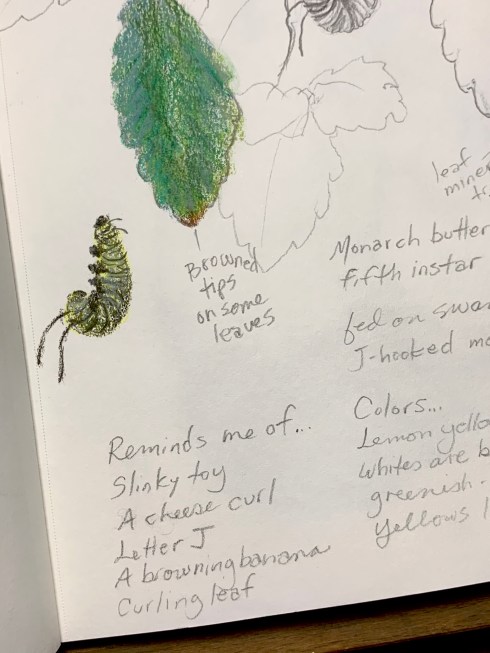 leaf
Browned
tips
on some
leaves
Monarch
fifth instar
fed on
J-hooked
Reminds me of...
Slinky toy
A cheese curl
Letter J
A browning banana
Curling leaf
Colors...
Lemon
Whites are
greenish.
Yellows